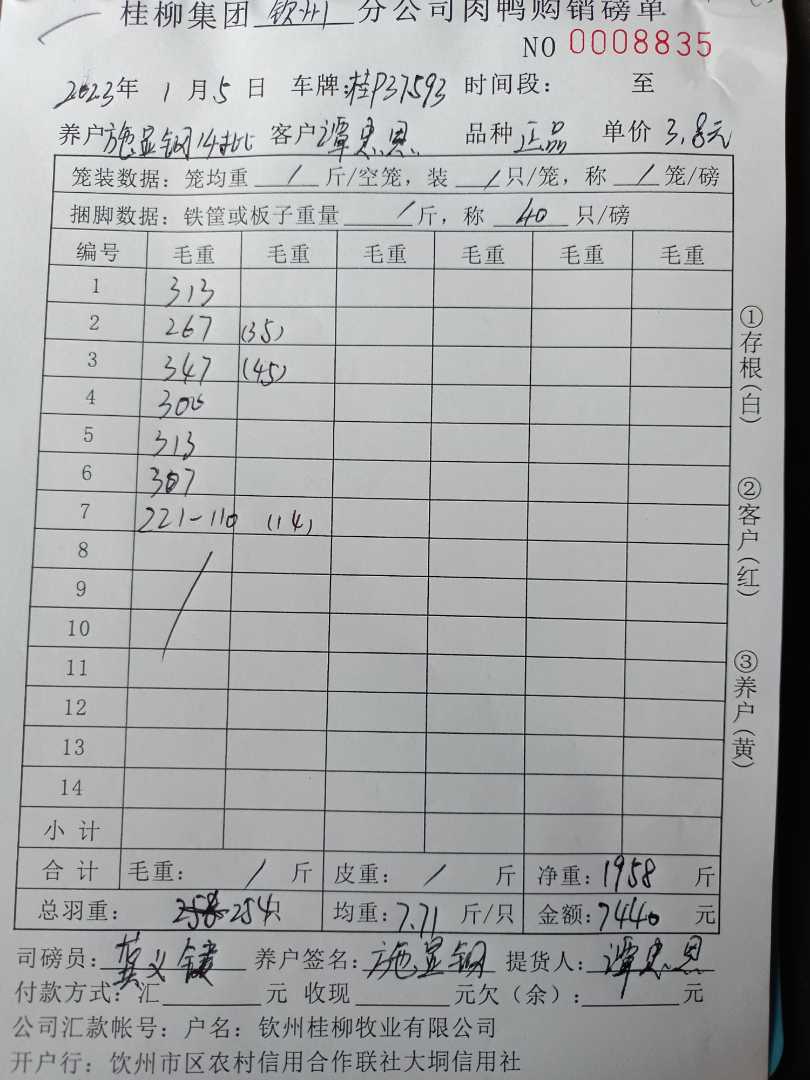 桂柳集团 钦州 分公司肉鸭购销磅单
NO 0008835
2023年 1月5日 车牌:桂P37593 时间段: 至
养户施显钢14批 客户谭忠恩 品种正品 单价 3.8元
笼装数据:笼均重 / 斤/空笼,装 / 只/笼,称 / 笼/磅
捆脚数据:铁筐或板子重量 / 斤,称 40 只/磅
编号 毛重 毛重 毛重 毛重 毛重 毛重
1 313
2 267 (35)
3 347 (45)
4 306
5 313
6 307
7 221-110 (14)
8
9
10
11
12
13
14
小计
合计 毛重: / 斤 皮重: / 斤 净重:1958 斤
总羽重: 258 254只 均重:7.71 斤/只 金额:7440 元
司磅员: 养户签名:施显钢 提货人:谭忠恩
付款方式:汇 元 收现 元欠(余): 元
公司汇款帐号:户名:钦州桂柳牧业有限公司
开户行:钦州市区农村信用合作联社大垌信用社
①存根(白)
②客户(红)
③养户(黄)